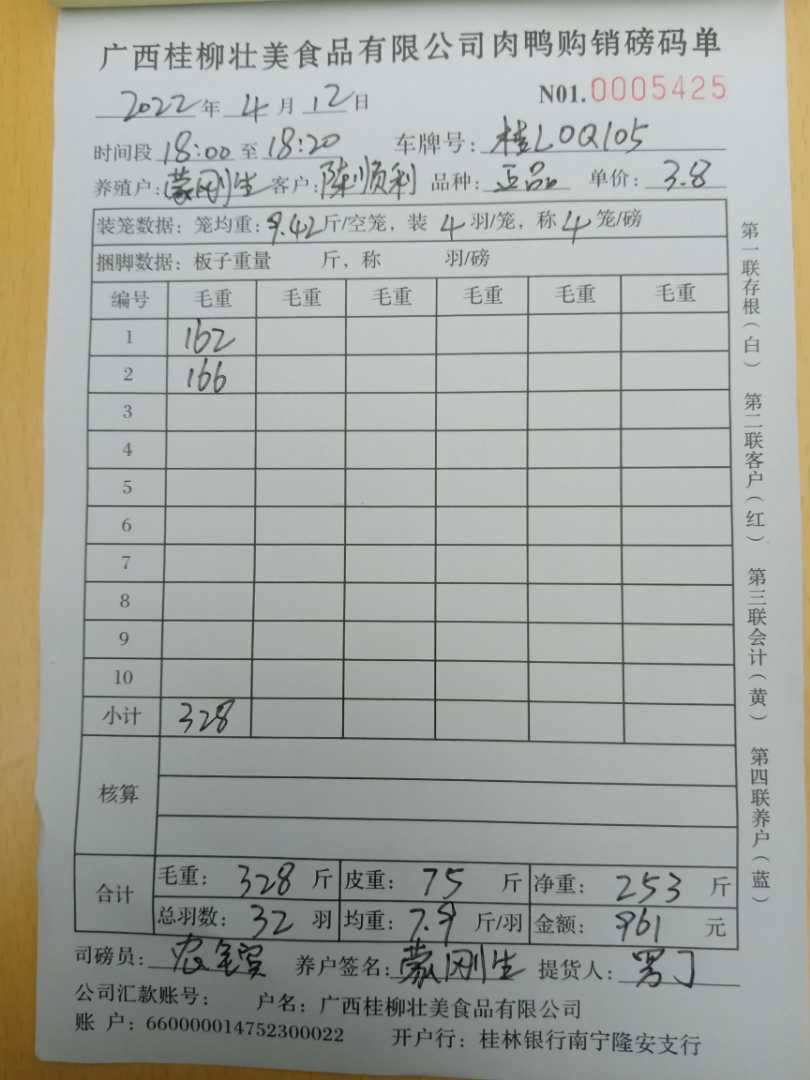 广西桂柳壮美食品有限公司肉鸭购销磅码单
2022年4月12日 N01.0005425
时间段18:00至18:20 车牌号:桂L0Q105
养殖户:蒙刚生 客户:陈顺利 品种:正品 单价:3.8
装笼数据:笼均重:9.42斤/空笼,装4羽/笼,称4笼/磅
捆脚数据:板子重量 斤,称 羽/磅
编号 毛重 毛重 毛重 毛重 毛重 毛重
1 162
2 166
3
4
5
6
7
8
9
10
小计 328
核算
合计 毛重:328斤 皮重:75斤 净重:253斤
总羽数:32羽 均重:7.9斤/羽 金额:961元
司磅员: 养户签名:蒙刚生 提货人:
公司汇款账号: 户名:广西桂柳壮美食品有限公司
账 户:660000014752300022 开户行:桂林银行南宁隆安支行
第一联存根(白) 第二联客户(红) 第三联会计(黄) 第四联养户(蓝)